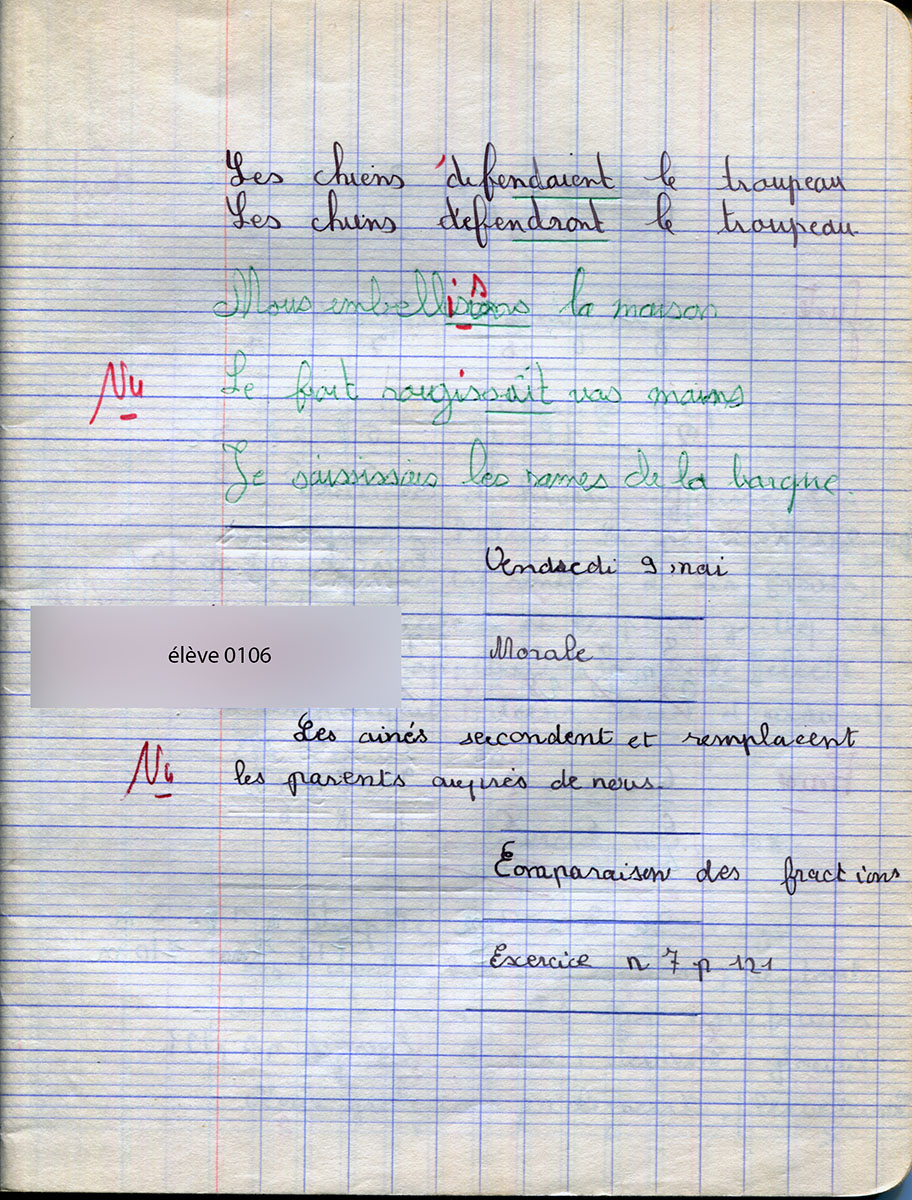 Les chiens défendaient le troupeau
Les chiens défendront le troupeau.
Nous embellissions la maison
Nu Le froit rougissait vos mains
Je saississais les rames de la barque.
Vendredi 9 mai
élève 0106
Morale
Les ainés secondent et remplacent
Nu les parents auprès de nous.
Comparaison des fractions
Exercice n 7 p 121